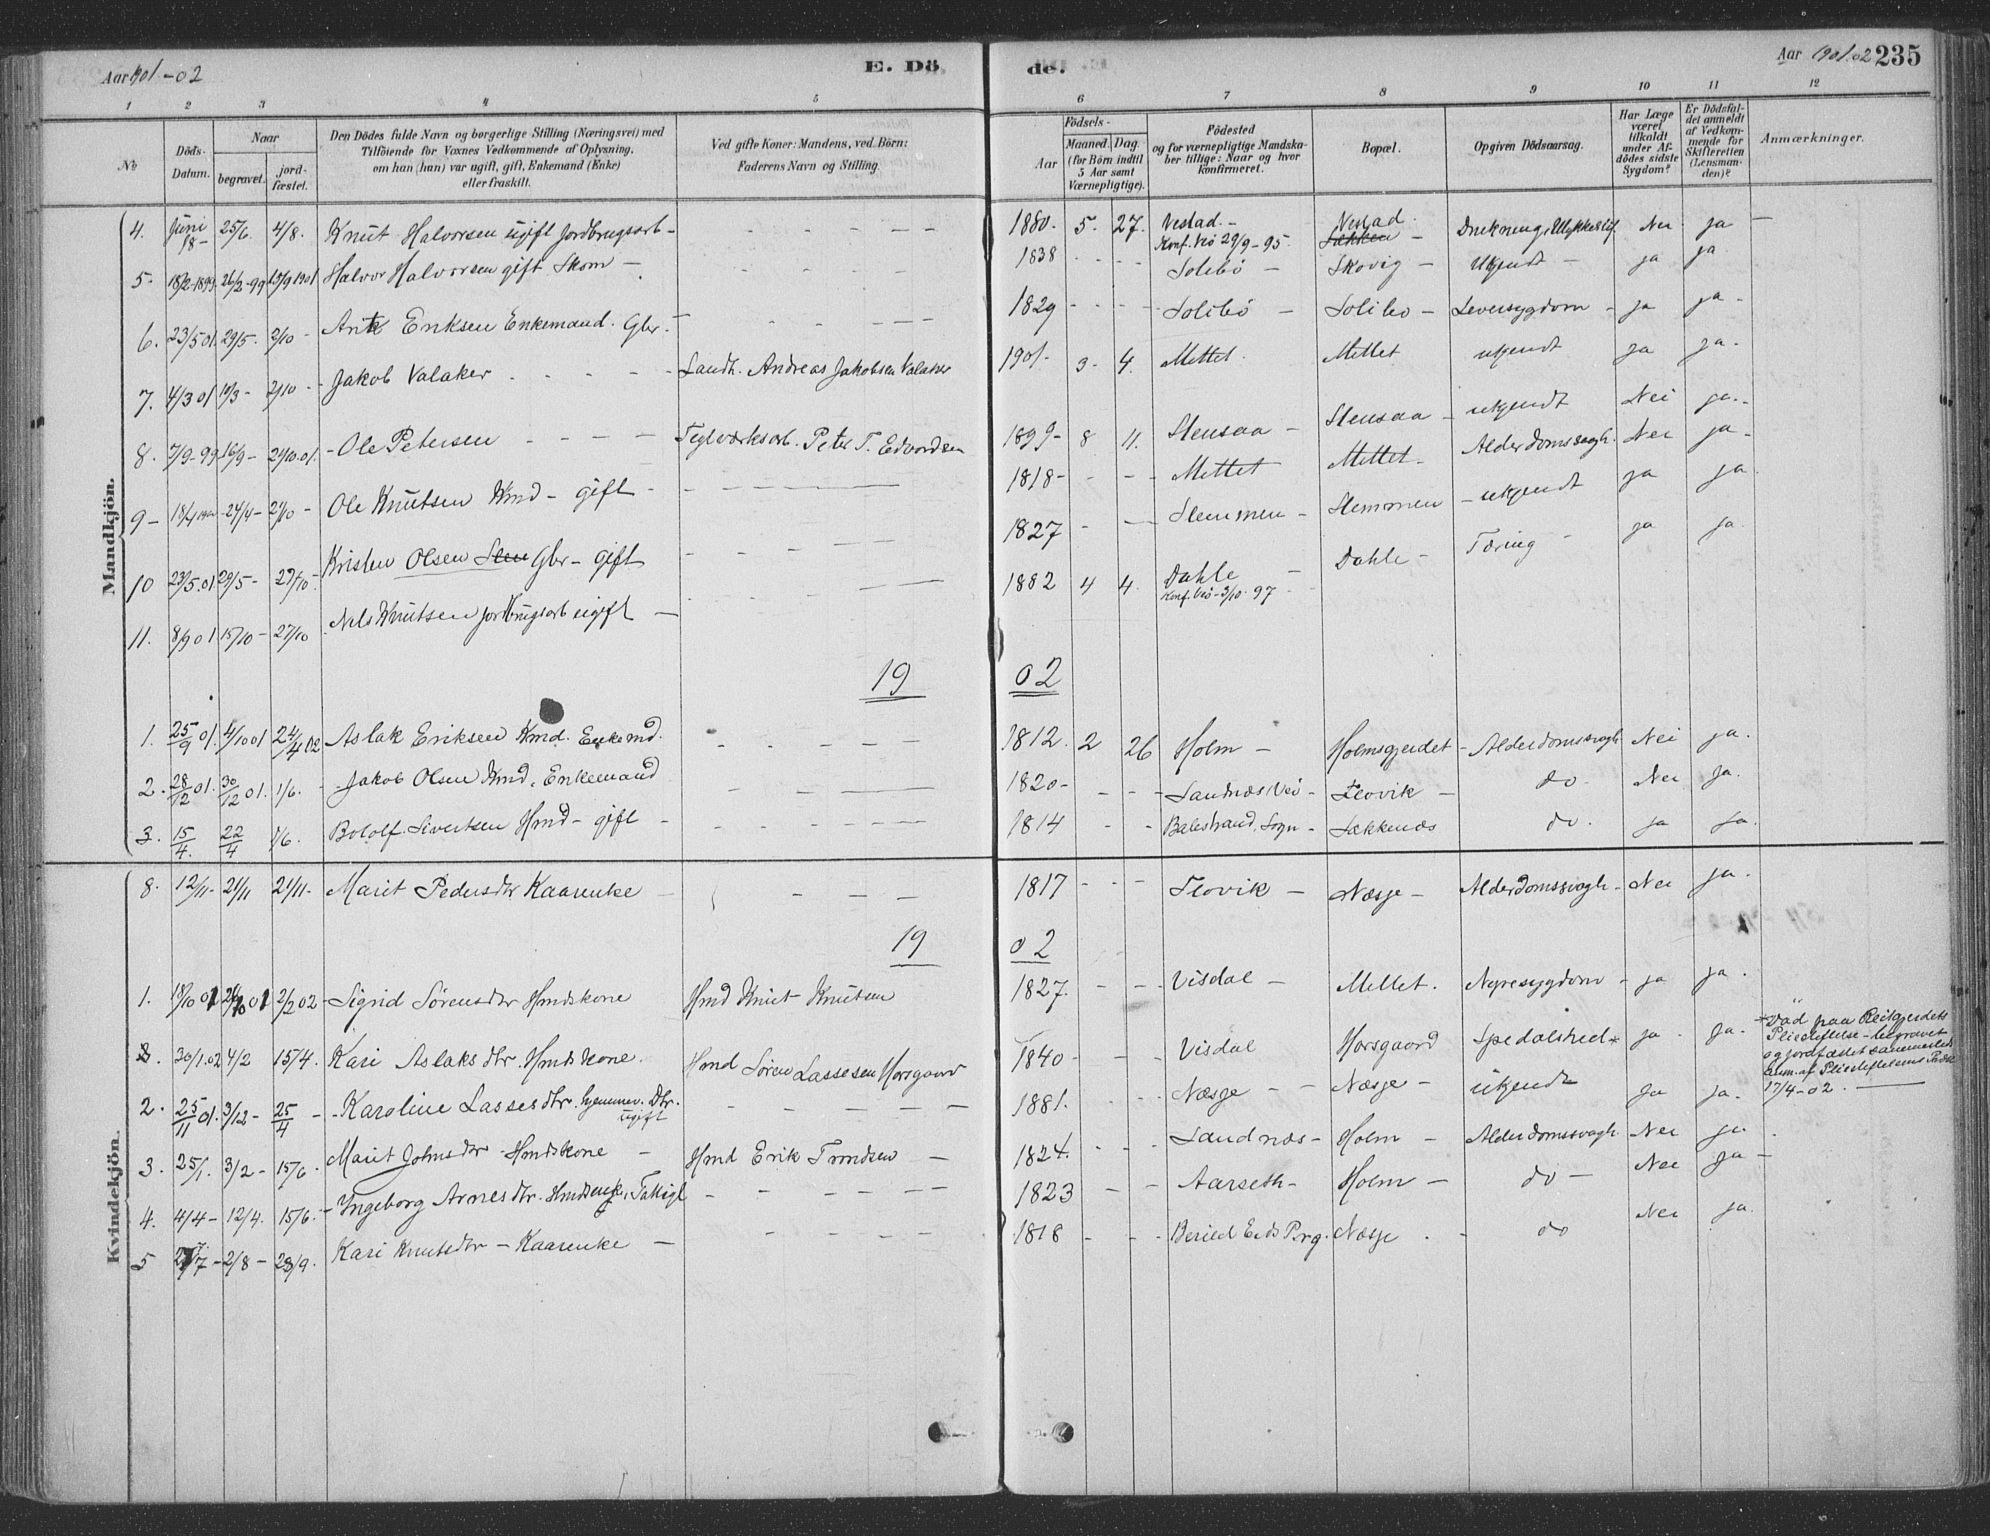 Aar 1901-02
E. Dö
de.
Aar 1901.02 235
1 2 3 4 5 6 7 8 9 10 11 12
No
Döds-Datum.
Naar
begravet.
jordfæstet.
Den Dödes fulde Navn og borgerlige Stilling (Næringsvei) med
Tilföiende for Voxnes Vedkommende af Oplysning,
om han (hun) var ugift, gift, Enkemand (Enke)
eller fraskilt.
Ved gifte Koner: Mandens, ved. Börn:
Faderens Navn og Stilling.
Födsels-
Aar
Maaned. Dag.
(for Börn indtil
5 Aar samt
Værnepligtige).
Födested
og for værnepligtige Mandska-
ber tillige: Naar og hvor
konfirmeret.
Bopæl.
Opgiven Dödsaarsag.
Har Læge
været
tilkaldt
under Af-
dödes sidste
Sygdom?
Er Dödsfal-
det anmeldt
af Vedkom-
mende for
Skifteretten
(Lensman-
den)?
Anmærkninger.
Mandkjön.
4. Juni 18- 25/6. 4/8. Knut Halvorsen ugift Jordbrugsarb- 1880. 5. 27. Vestad.- Konf. Veö 29/9-95. Vestad. Sækken - Drukning, Ulykkestilf. Nei ja -
5. 18/2-1899. 26/2-99 15/9 1901 Halvor Halvorsen gift Skom - 1838 Solibö - Skovig - Ukjendt - ja ja
6. 23/5 01. 29/5- 2/10- Eriksen Enkemand. Gbr. 1829 Solibö - Solibö - Leversygdom - ja ja -
7. 4/3 01 10/3- 2/10 - Jakob Valaker Landh. Andreas Jakobsen Valaker 1901- 3- 4. Mittet. Mittet ukjendt ja ja-
8. 7/9-99 16/9- 27/10.01. -Ole Petersen Teglværksarb. Peter T. Edvardsen 1899- 8 11. Stensaa - Stensaa - ukjendt Nei ja.-
9- 18/4 24/4- 27/10 - Ole Knutsen Kmd - gift - 1818- Mittet Mittet - Alderdomssvagh. Nei ja -
10 23/5.01 29/5- 27/10- Kristen Olsen Gbr - gift 1827 Stemmen - Stemmen - ukjendt ja ja
11. 8/9 01 15/10- 27/10 Nils Knutsen Jordbrugsarb ugift - 1882 4 4. Dahle - Konf. Veö-3/10-97 Dahle - Tæring - ja ja
19 02
1. 25/9 01. 4/10 01 24/4 02 Aslak Eriksen Kmd. Enkemd. 1812. 2 26 Holm - Holmsgjerdet - Alderdomssvagh. Nei ja.
2. 28/12 01. 30/12 01. 1/6. Jakob Olsen Kmd. Enkemand 1820- Sandnæs, Veö - Flovik - do - Nei ja.
3. 15/4. 22/4 1/6. Sivertsen Hmd - gift - 1814 Balestrand, Sogn - Sækkenæs do. ja ja.
Kvindekjön.
8. 12/11- 21/11 21/11- Marit Pedersdtr Kaarenke - 1817 Flovik - Næsje - Alderdomssvagh - Nei ja.
19 02
1. 18/10 01 01 2/2 02 - Sigrid Sörensdtr Hmdskone Hmd Knut Knutsen 1827. Visdal - Mittet. Nyresygdom - ja ja.
30/1.02 4/2 15/4. Kari Aslaksdtr Hmdskone. Hmd Sören Lassesen Horsgaard 1840- Visdal Horsgaard Spedalshed * ja - ja. * Död paa Reitgjerdets
Pleiestiftelse - begravet
og jordfæstet sammesteds
Anm. af Pleiestiftelsens Præst
17/4-02.
2. 25/11 01. 3/12- 25/4 - Karoline Lassesdtr. hjemmev. Dtr. ugift 1881. Næsje - - Næsje - ukjendt ja ja.
3. 25/1. 3/2- 15/6. Marit Johnsdtr - Hmdskone - Hmd Erik Trondsen - 1824. Sandnæs - Holm - Alderdomssvagh. Nei ja.
4. 4/4- 12/4. 15/6. - Ingeborg Arnesdtr. Hmdsenke, Fattigl - 1823 Aarseth - Holm - do - Nei ja -
5 2/8 - 28/9. Kari Knutsdtr - Kaarenke - 1818 Eids Prg. Næsje - do Nei ja.